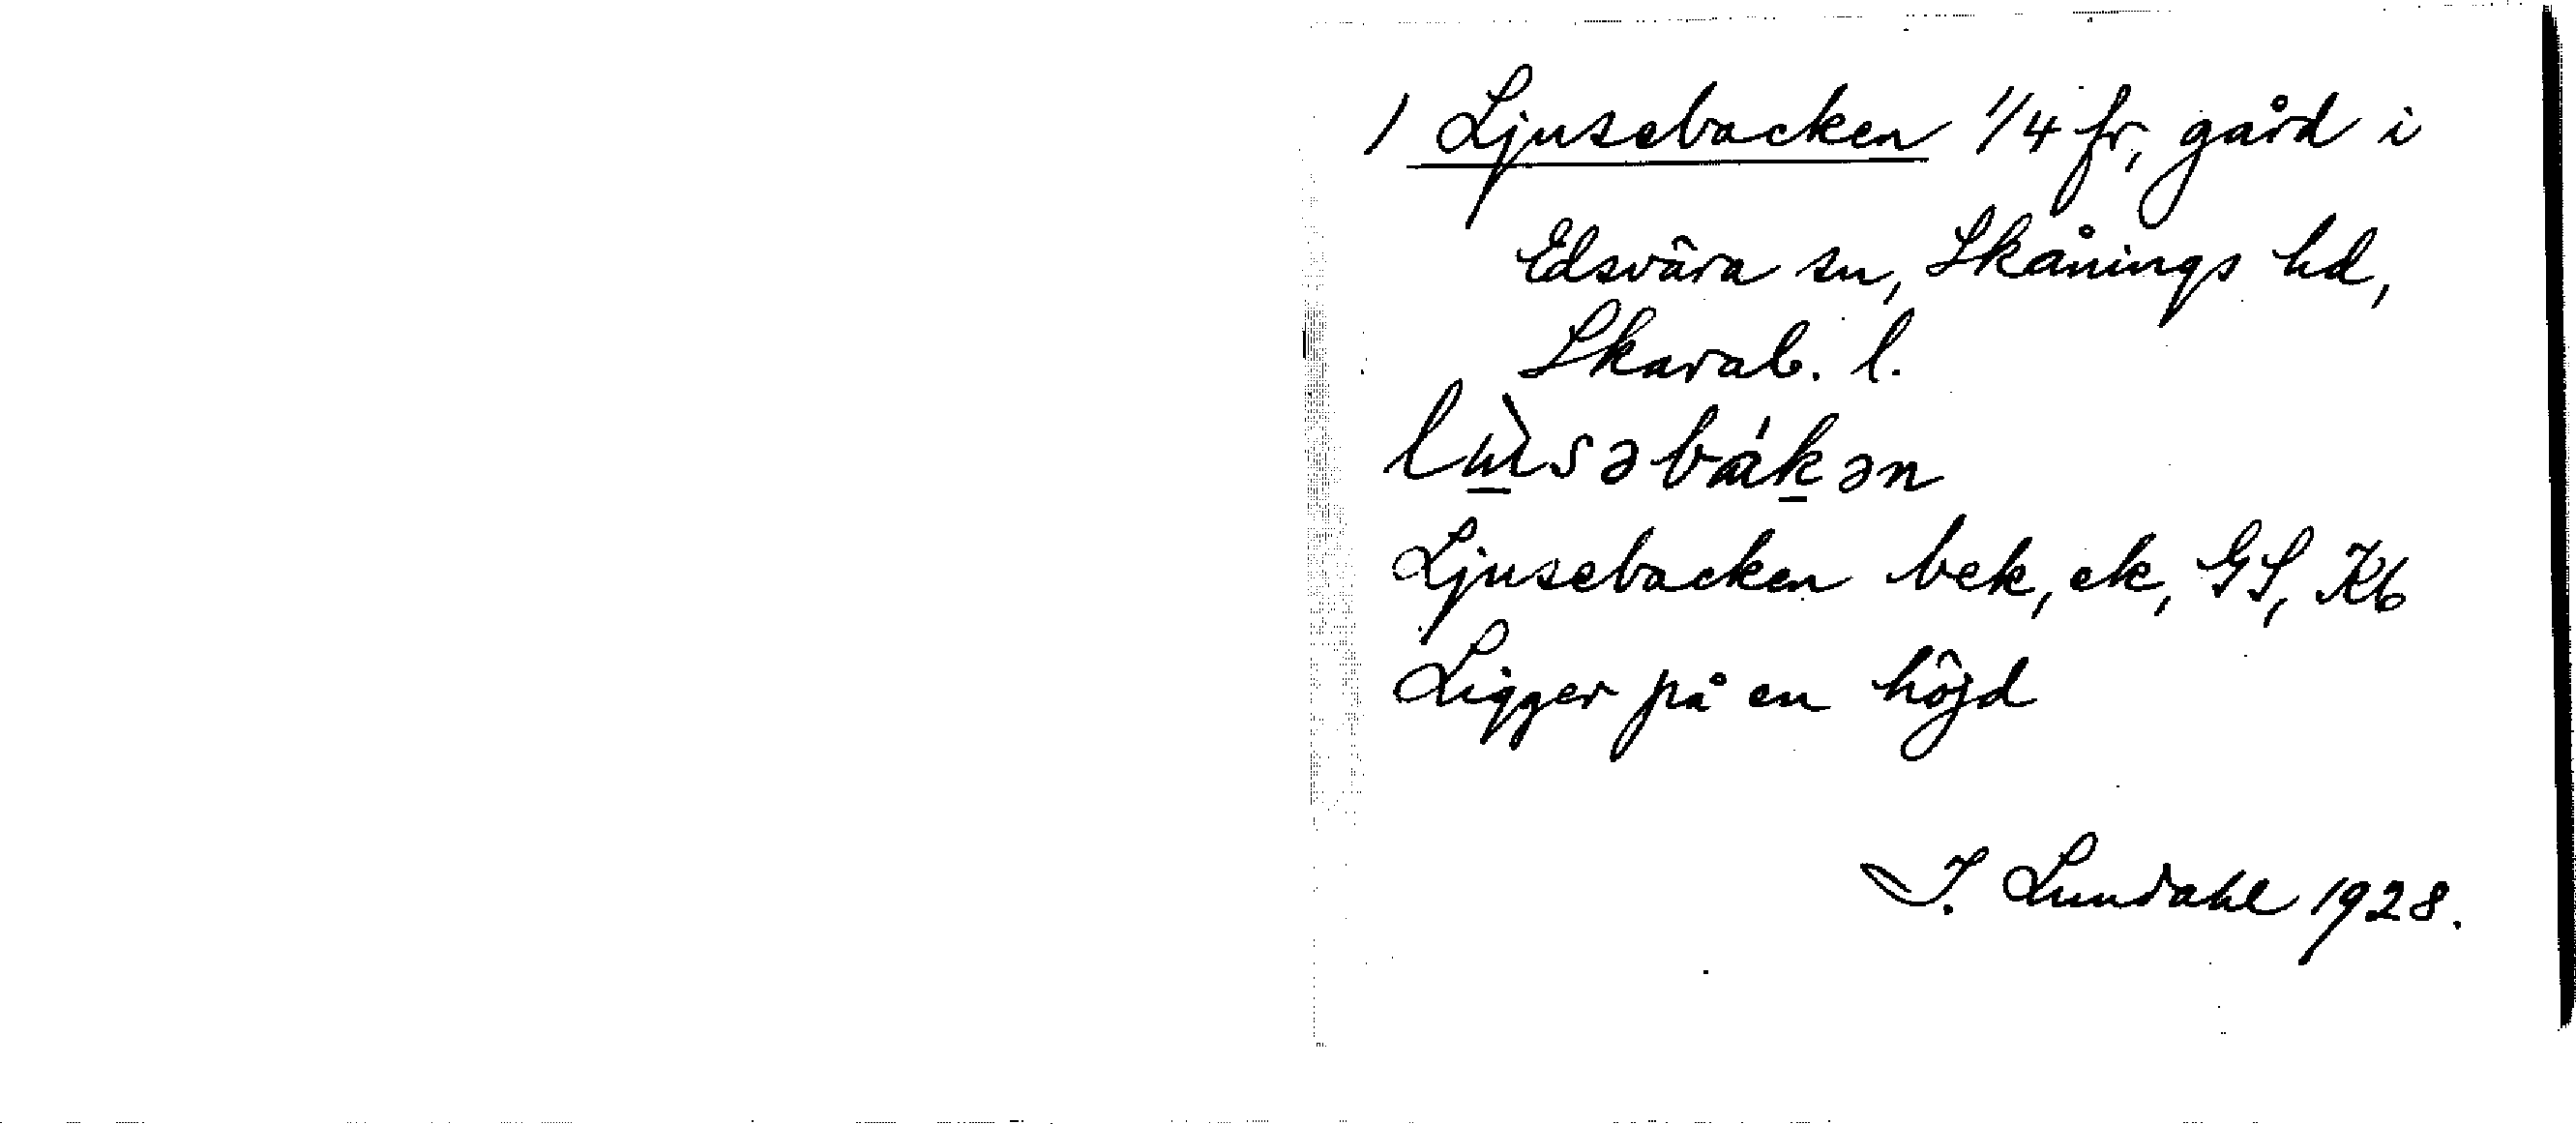 1 Ljusebacken 1/4 fr, gård i
Edsvära sn, Skånings hd,
Skarab. l.
lɯ̀səbákən
Ljusebacken bek, ek, GS, Kb
Ligger på en höjd
I. Lundahl 1928.